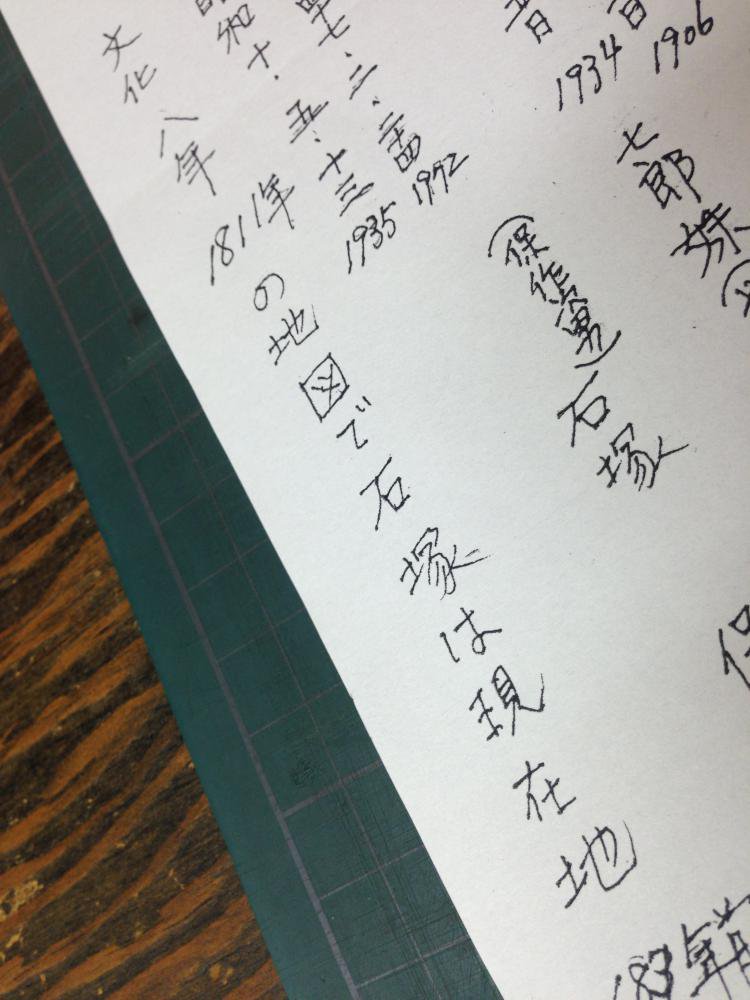 1906
1934
七郎 妹
(保作男)石塚
七・二・二四 1972
昭和十・五・十三 1935
文化 八年 1811年の地図で石塚は現在地